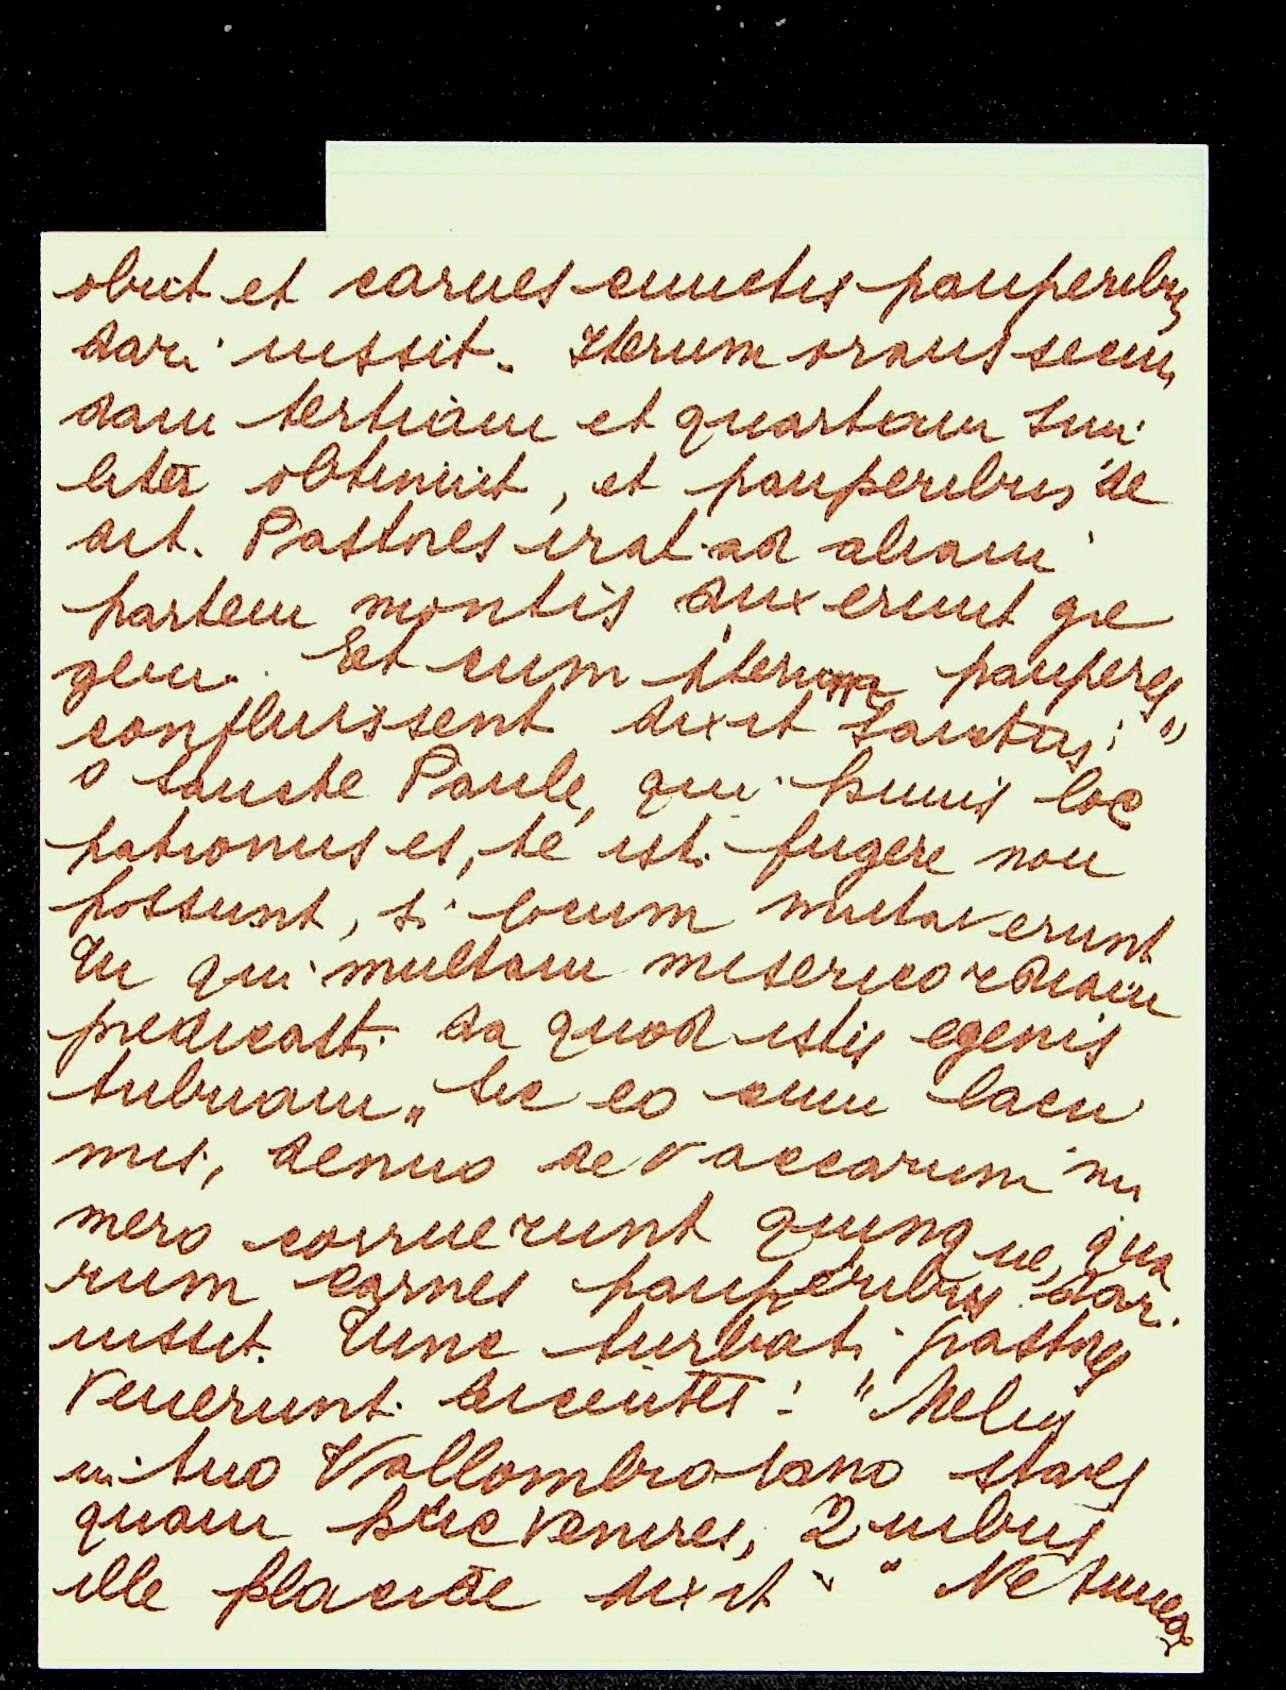 obiit et carnes cunctis pauperibus
dari iussit. Iterum orans secun
dam tertiam et quartam simi
liter obtinuit, et pauperibus de
dit. Pastores irati ad aliam
partem montis duxerunt gre
gem. Et cum iterum pauperes
confluissent dixit Sanctus: "
O sancte Paule, qui huius loc
patronus es, te isti fugere non
possunt, si locum mutaverunt
Tu qui multam misericordiam
predicasti da quod istis egenis
tribuam" Sic eo cum lacri
mis, denuo de vaccarum nu
mero corruerunt quinque, qua
rum carnes pauperibus dari
iussit. Tunc turbati pastores
venerunt dicentes: "Melius
in tuo Vallombrosano stares
quam huc venires, Quibus
ille placide dixit "Ne timeas